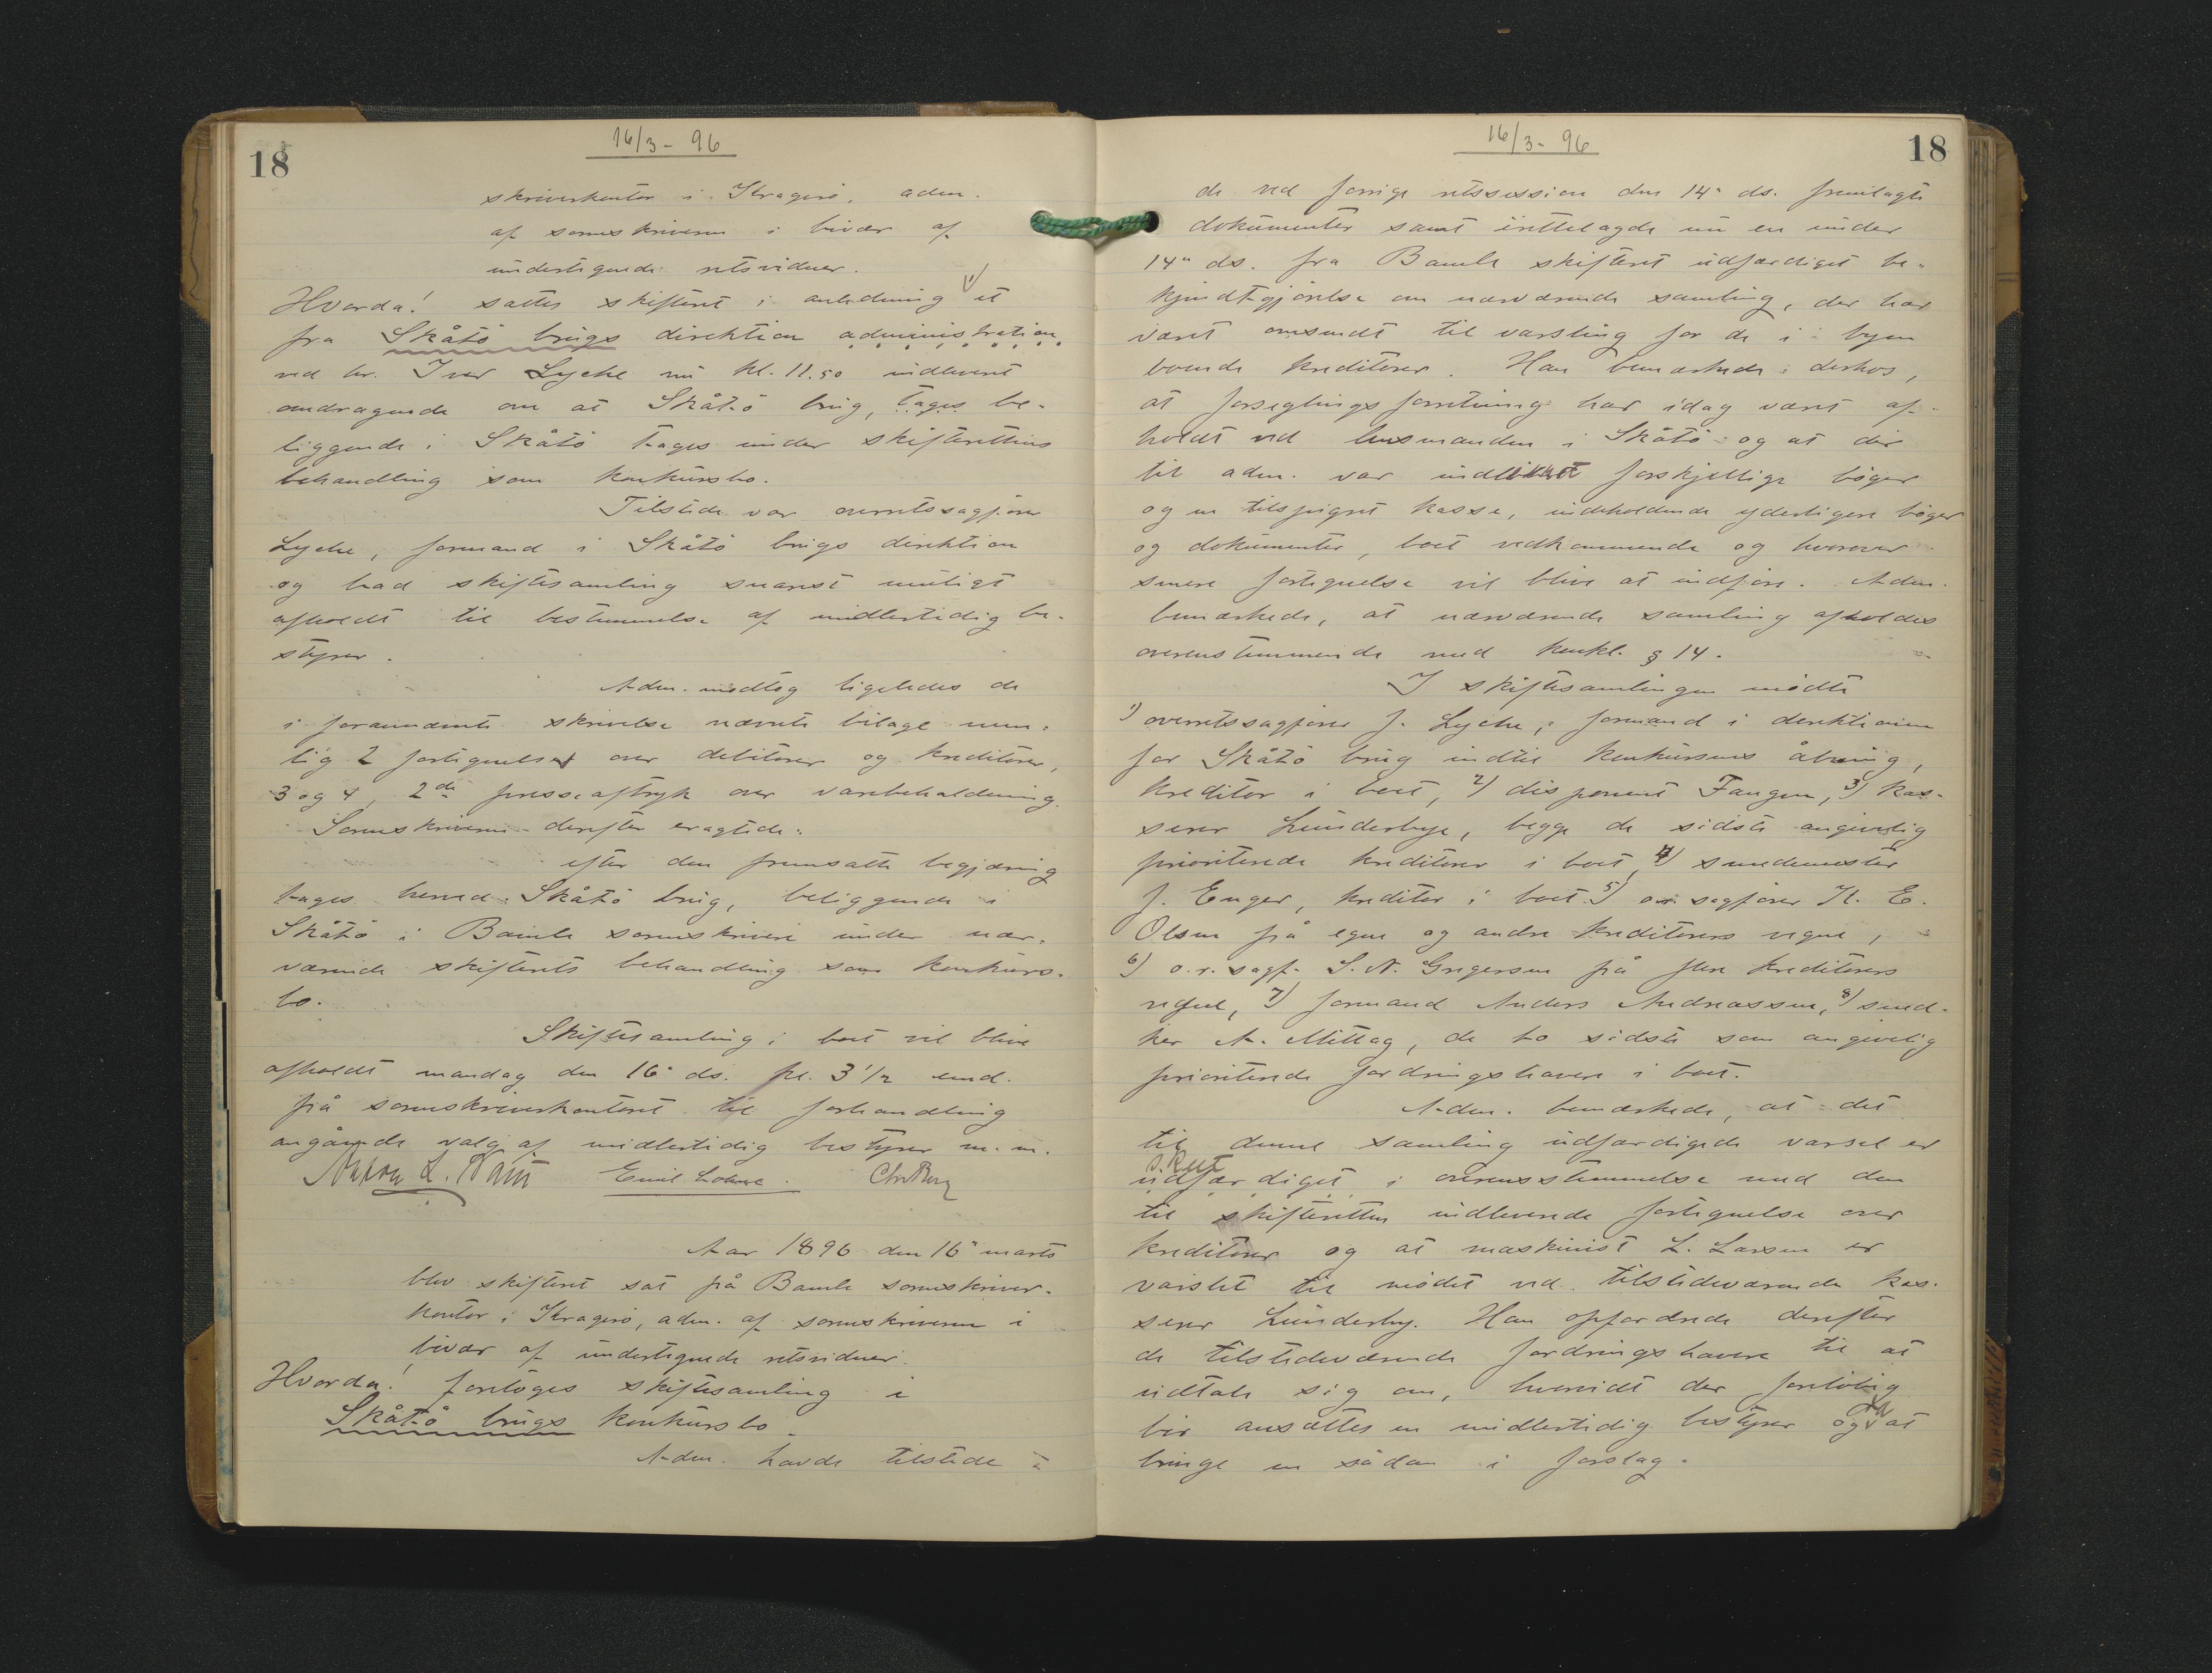 18
16/3 - 96
skriverkontor i Kragerø, adm.
af sorenskriveren i bivær af
undertegnede retsvidner.
Hvorda! sattes skifteret i anledning et
fra Skåtö brugs direktion administration
ved hr. Iver Lyche nu kl. 11.50 indleveret
andragende om at Skåtö brug, tages be-
liggende i Skåtö tages under skifterettens
behandling som konkursbo.
Tilstede var overretssagfører
Lyche, formand i Skåtö brugs direktion
og bad skiftesamling snarest muligt
afholdt til bestemmelse af midlertidig be-
styrer.
Adm. modtog ligeledes de
i forannævnte skrivelse nævnte bilage nem-
lig 2 fortegnelser over debitorer og kreditorer,
3 og 4, 2de presseaftryk over varebeholdning.
Sorenskriveren derefter eragtede:
efter den fremsatte begjæring
tages herved Skåtö brug, beliggende i
Skåtö i Bamle sorenskriveri under nær-
værende skifterets behandling som konkurs-
bo.
Skiftesamling i boet vil blive
afholdt mandag den 16de ds. kl. 3 1/2 emd.
på sorenskriverkontoret til forhandling
angående valg af midlertidig bestyrer m.m.
Emil Lohne. Chr Berg
Aar 1896 den 16de marts
blev skifteret sat på Bamle sorenskriver-
kontor i Kragerø, adm. af sorenskriveren i
bivær af undertegnede retsvidner.
Hvorda! foretoges skiftesamling i
Skåtö brugs konkursbo.
Adm. havde tilstede
16/3 - 96
18
de ved forrige retssession den 14de ds. fremlagte
dokumenter samt irettelagde nu en under
14de ds. fra Bamle skifteret udfærdiget be-
kjendtgjørelse om nærværende samling, der har
været omsendt til varsling for de i byen
boende kreditorer. Han bemærkede derhos,
at forseglingsforretning har idag været af-
holdt ved lensmanden i Skåtö og at der
til adm. var indleveret forskjellige bøger
og en tilspigret kasse, indeholdende yderligere bøger
og dokumenter, boet vedkommende og hvorover
senere fortegnelse vil blive at indføre. Adm.
bemærkede, at nærværende samling afholdes
overenstemmende med konkl. § 14.
I skiftesamlingen mødte
1) overretssagfører J. Lyche, formand i direktionen
for Skåtö brug indtil konkursens åbning,
kreditor i boet, 2) disponent Fangen, 3) kas-
serer Lunderbye, begge de sidste angivelig
prioriterede kreditorer i boet, 4) smedemester
J. Enger, kreditor i boet. 5) o.r. sagfører K. E.
Olsen på egne og andre kreditorers vegne,
6) o.r. sagf. S. N. Gregersen på flere kreditorers
vegne, 7) formand Anders Andreassen, 8) sned-
ker A. Mittag, de to sidste som angivelig
prioriterede fordringshavere i boet.
Adm. bemærkede, at det
til denne samling udfærdigede varsel er
skeet
udfærdiget i overensstemmelse med den
til skifteretten indleverede fortegnelse over
kreditorer og at maskinist L. Larsen er
varslet til mødet ved tilstedeværende kas-
serer Lunderby. Han opfordrede derefter
de tilstedeværende fordringshavere til at
udtale sig om, hvorvidt der foreløbig
bør ansættes en midlertidig bestyrer og da at
bringe en sådan i forslag.